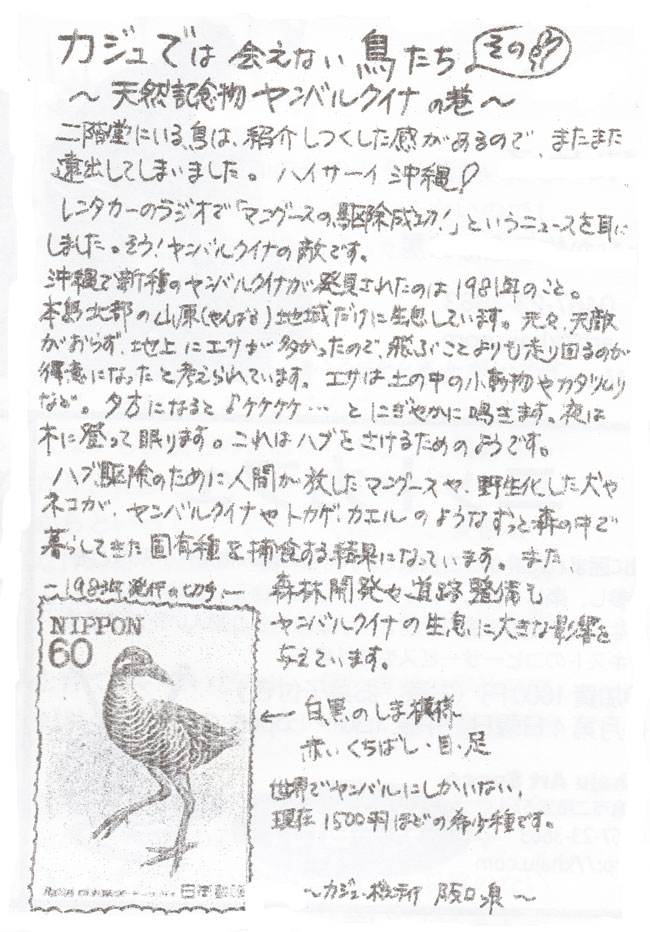 カジュでは 会えない 鳥たち その
～ 天然記念物 ヤンバルクイナ の巻 ～
二階堂にいる鳥は、紹介しつくした感があるので、またまた
遠出してしまいました。 ハイサーイ 沖縄！
レンタカーのラジオで「マングースの駆除成功！」というニュースを耳に
しました。そう！ヤンバルクイナの敵です。
沖縄で新種のヤンバルクイナが発見されたのは1981年のこと。
本島北部の山原(やんばる)地域だけに生息しています。元々、天敵
がおらず、地上にエサが多かったので、飛ぶことよりも走り回るのが
得意になったと考えられています。エサは土の中の小動物やカタツムリ
など。夕方になると♪ケケケケ… とにぎやかに鳴きます。夜は
木に登って眠ります。これはハブをさけるためのようです。
ハブ駆除のために人間が放したマングースや、野生化した犬や
ネコが、ヤンバルクイナやトカゲ、カエルのようなずっと森の中で
暮らしてきた固有種を捕食する結果になっています。また
森林開発や道路整備も
ヤンバルクイナの生息に大きな影響を
与えています。
発行の切手
NIPPON
60
日本郵便
← 白黒のしま模様
赤いくちばし・目・足
世界でヤンバルにしかいない、
現在1500羽ほどの希少種です。
～カジュ・ 阪口 泉 ～